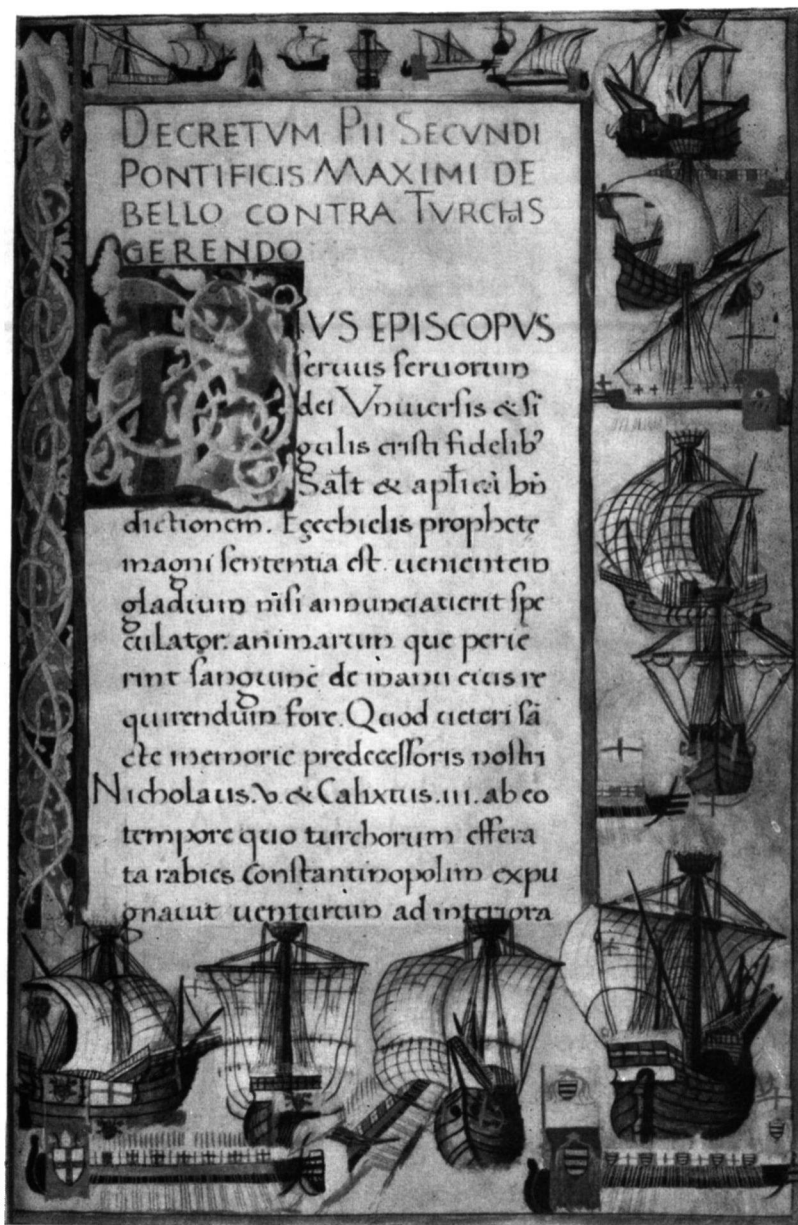 DECRETVM PII SECVNDI
PONTIFICIS MAXIMI DE
BELLO CONTRA TVRCHOS
GERENDO
PIVS EPISCOPVS
seruus seruorum
dei Vniuersis & si
gulis cristi fidelibꝰ
Salt & aplicā bn̄
dictionem. Ezechielis prophete
magni sententia est uenientem
gladium nisi annunciauerit spe
culator: animarum que perie
rint sanguinē de manu eius re
quirendum fore. Quod ueteri sā
cte memorie predecessoris nostri
Nicholaus .v. & Calixtus .iii. ab eo
tempore quo turchorum effera
ta rabies Constantinopolim expu
gnauit uenturum ad interiora